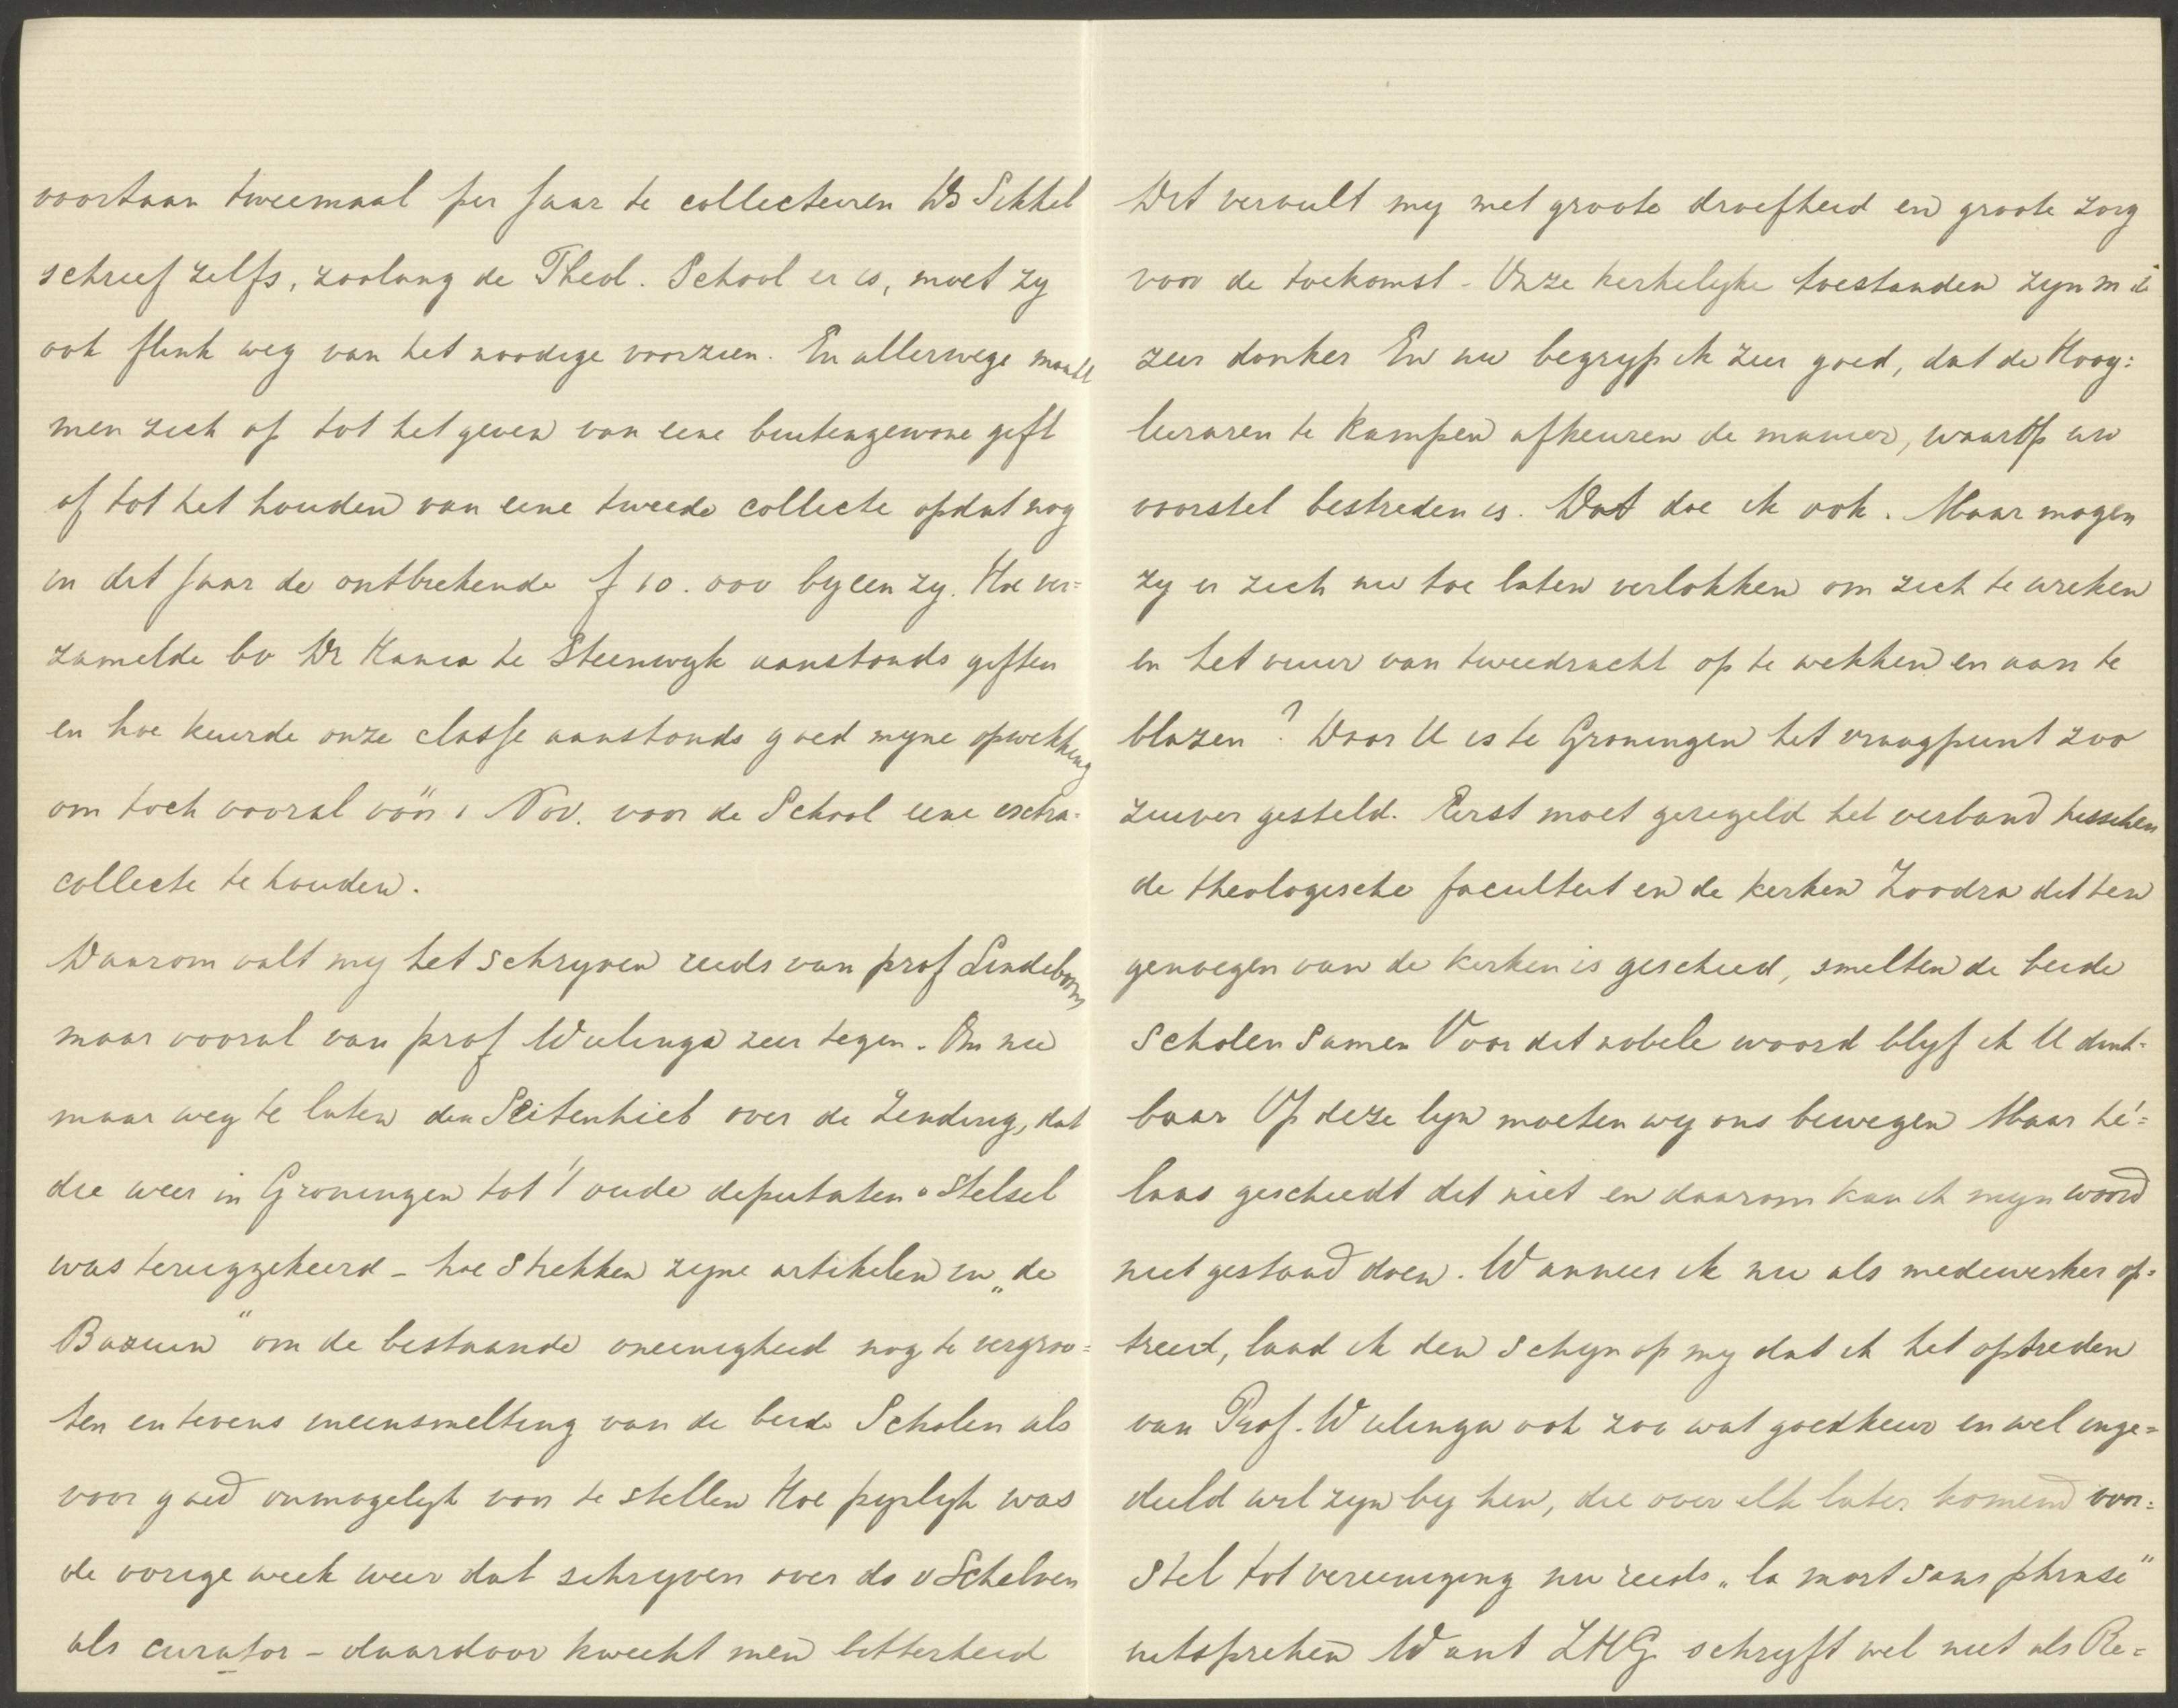 voortaan tweemaal per jaar te collecteeren Ds Sikkel
schreef zelfs, zoolang de Theol. School er is, moet zy
ook flink weg van het noodige voorzien. En allerwege maakt
men zich op tot het geven van eene buitengewone gift
of tot het houden van eene tweede collecte opdat nog
in dit jaar de ontbrekende f 10.000 byeen zy. Hoe ver=
zamelde bv Dr Kania te Steenwyk aanstonds giften
en hoe keurde onze classe aanstonds goed myne opwekking
om toch vooral vóór 1 Nov. voor de School eene extra-
collecte te houden.
Daarom valt my het schryven reeds van prof Lindeboom
maar vooral van prof Wielenga zeer tegen. Om nu
maar weg te laten den Seitenhieb over de Zending, dat
die weer in Groningen tot 't oude deputaten-stelsel
was teruggekeerd - hoe strekken zyne artikelen in „de
Bazuin" om de bestaande oneenigheid nog te vergroo=
ten en tevens ineensmelting van de beide Scholen als
voor goed onmogelyk voor te stellen Hoe pynlyk was
de vorige week weer dat schryven over ds v Schelven
als curator - daardoor kweekt men bitterheid
Dit vervult my met groote droefheid en groote zorg
voor de toekomst - Onze kerkelyke toestanden zyn m i
zeer donker En nu begryp ik zeer goed, dat de Hoog=
leeraren te Kampen afkeuren de manier, waarop uw
voorstel bestreden is. Dat doe ik ook. Maar mogen
zy er zich nu toe laten verlokken om zich te wreken
en het vuur van tweedracht op te wekken en aan te
blazen? Door U is te Groningen het vraagpunt zoo
zuiver gesteld. Eerst moet geregeld het verband tusschen
de theologische faculteit en de kerken Zoodra dit ten
genoegen van de kerken is geschied, smelten de beide
Scholen samen Voor dit nobele woord blyf ik U dank=
baar Op deze lyn moeten wy ons bewegen Maar hé=
laas geschiedt dit niet en daarom kan ik myn woord
niet gestand doen. Wanneer ik nu als medewerker op=
treed, laad ik den schyn op my dat ik het optreden
van Prof. Wielenga ook zoo wat goedkeur en wel inge=
deeld wil zyn by hen, die over elk later komend voor=
stel tot vereeniging nu reeds „la mort sans phrase"
uitspreken Want ZHG schryft wel niet als Re=